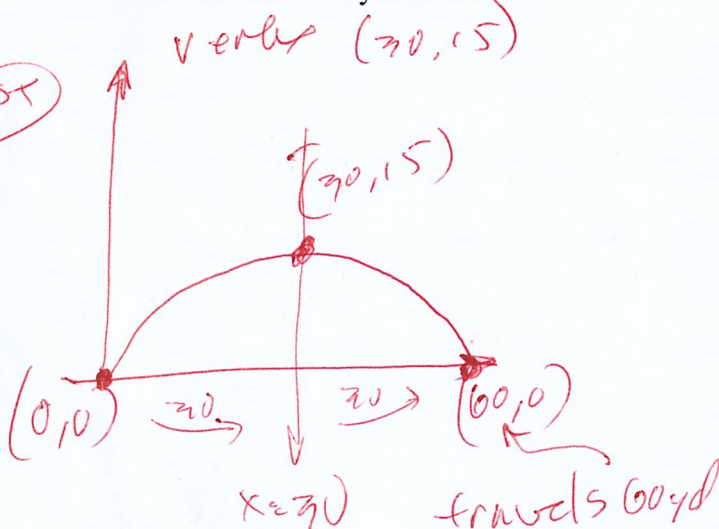 vertex (30,15)
(30,15)
(0,0) 30 30 (60,0)
x=30 travels 60yd